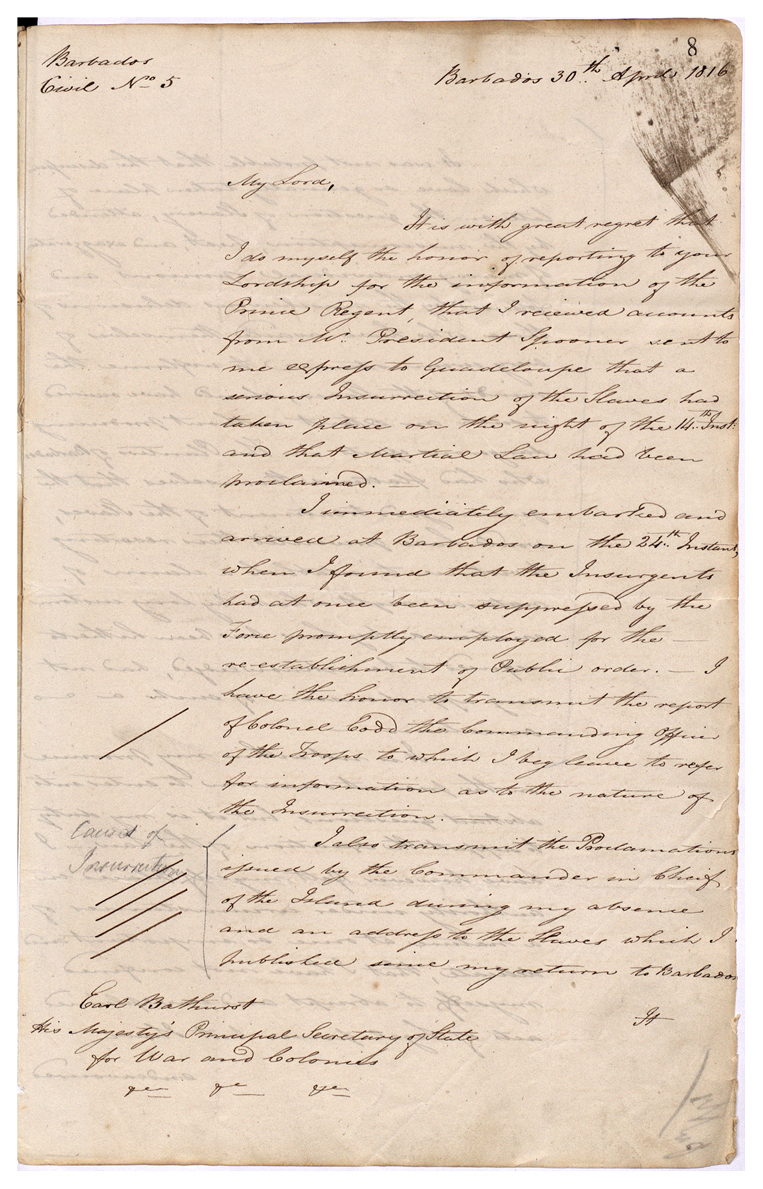 8
Barbados
Civil No 5
Barbados 30th April 1816
My Lord,
It is with great regret that
I do myself the honor of reporting to your
Lordship for the information of the
Prince Regent, that I received accounts
from Mr. President Spooner sent to
me express to Guadeloupe that a
serious Insurrection of the Slaves had
taken place on the night of the 14th Inst:
and that Martial Law had been
proclaimed. —
I immediately embarked and
arrived at Barbados on the 24th Instant,
when I found that the Insurgents
had at once been suppressed by the
Force promptly employed for the —
re-establishment of Public order. — I
have the honor to transmit the report
of Colonel Codd the Commanding Officer
of the Troops to which I beg leave to refer
for information as to the nature of
the Insurrection. —
Causes of
Insurrection
I also transmit the Proclamations
issued by the Commander in Chief
of the Island during my absence
and an address to the Slaves which I
published since my return to Barbados
It
Earl Bathurst
His Majesty's Principal Secretary of State
for War and Colonies
&c &c &c